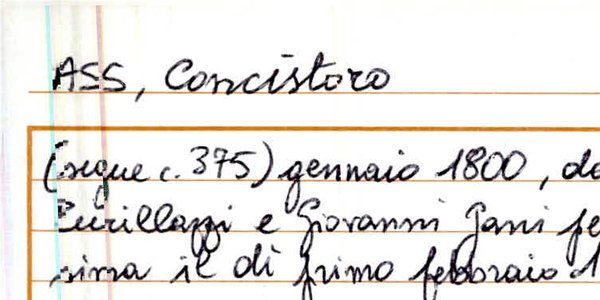 ASS, Concistoro
(segue c. 375) gennaio 1800, da
e Giovanni Gani fe
sima il dì primo febbraio 1